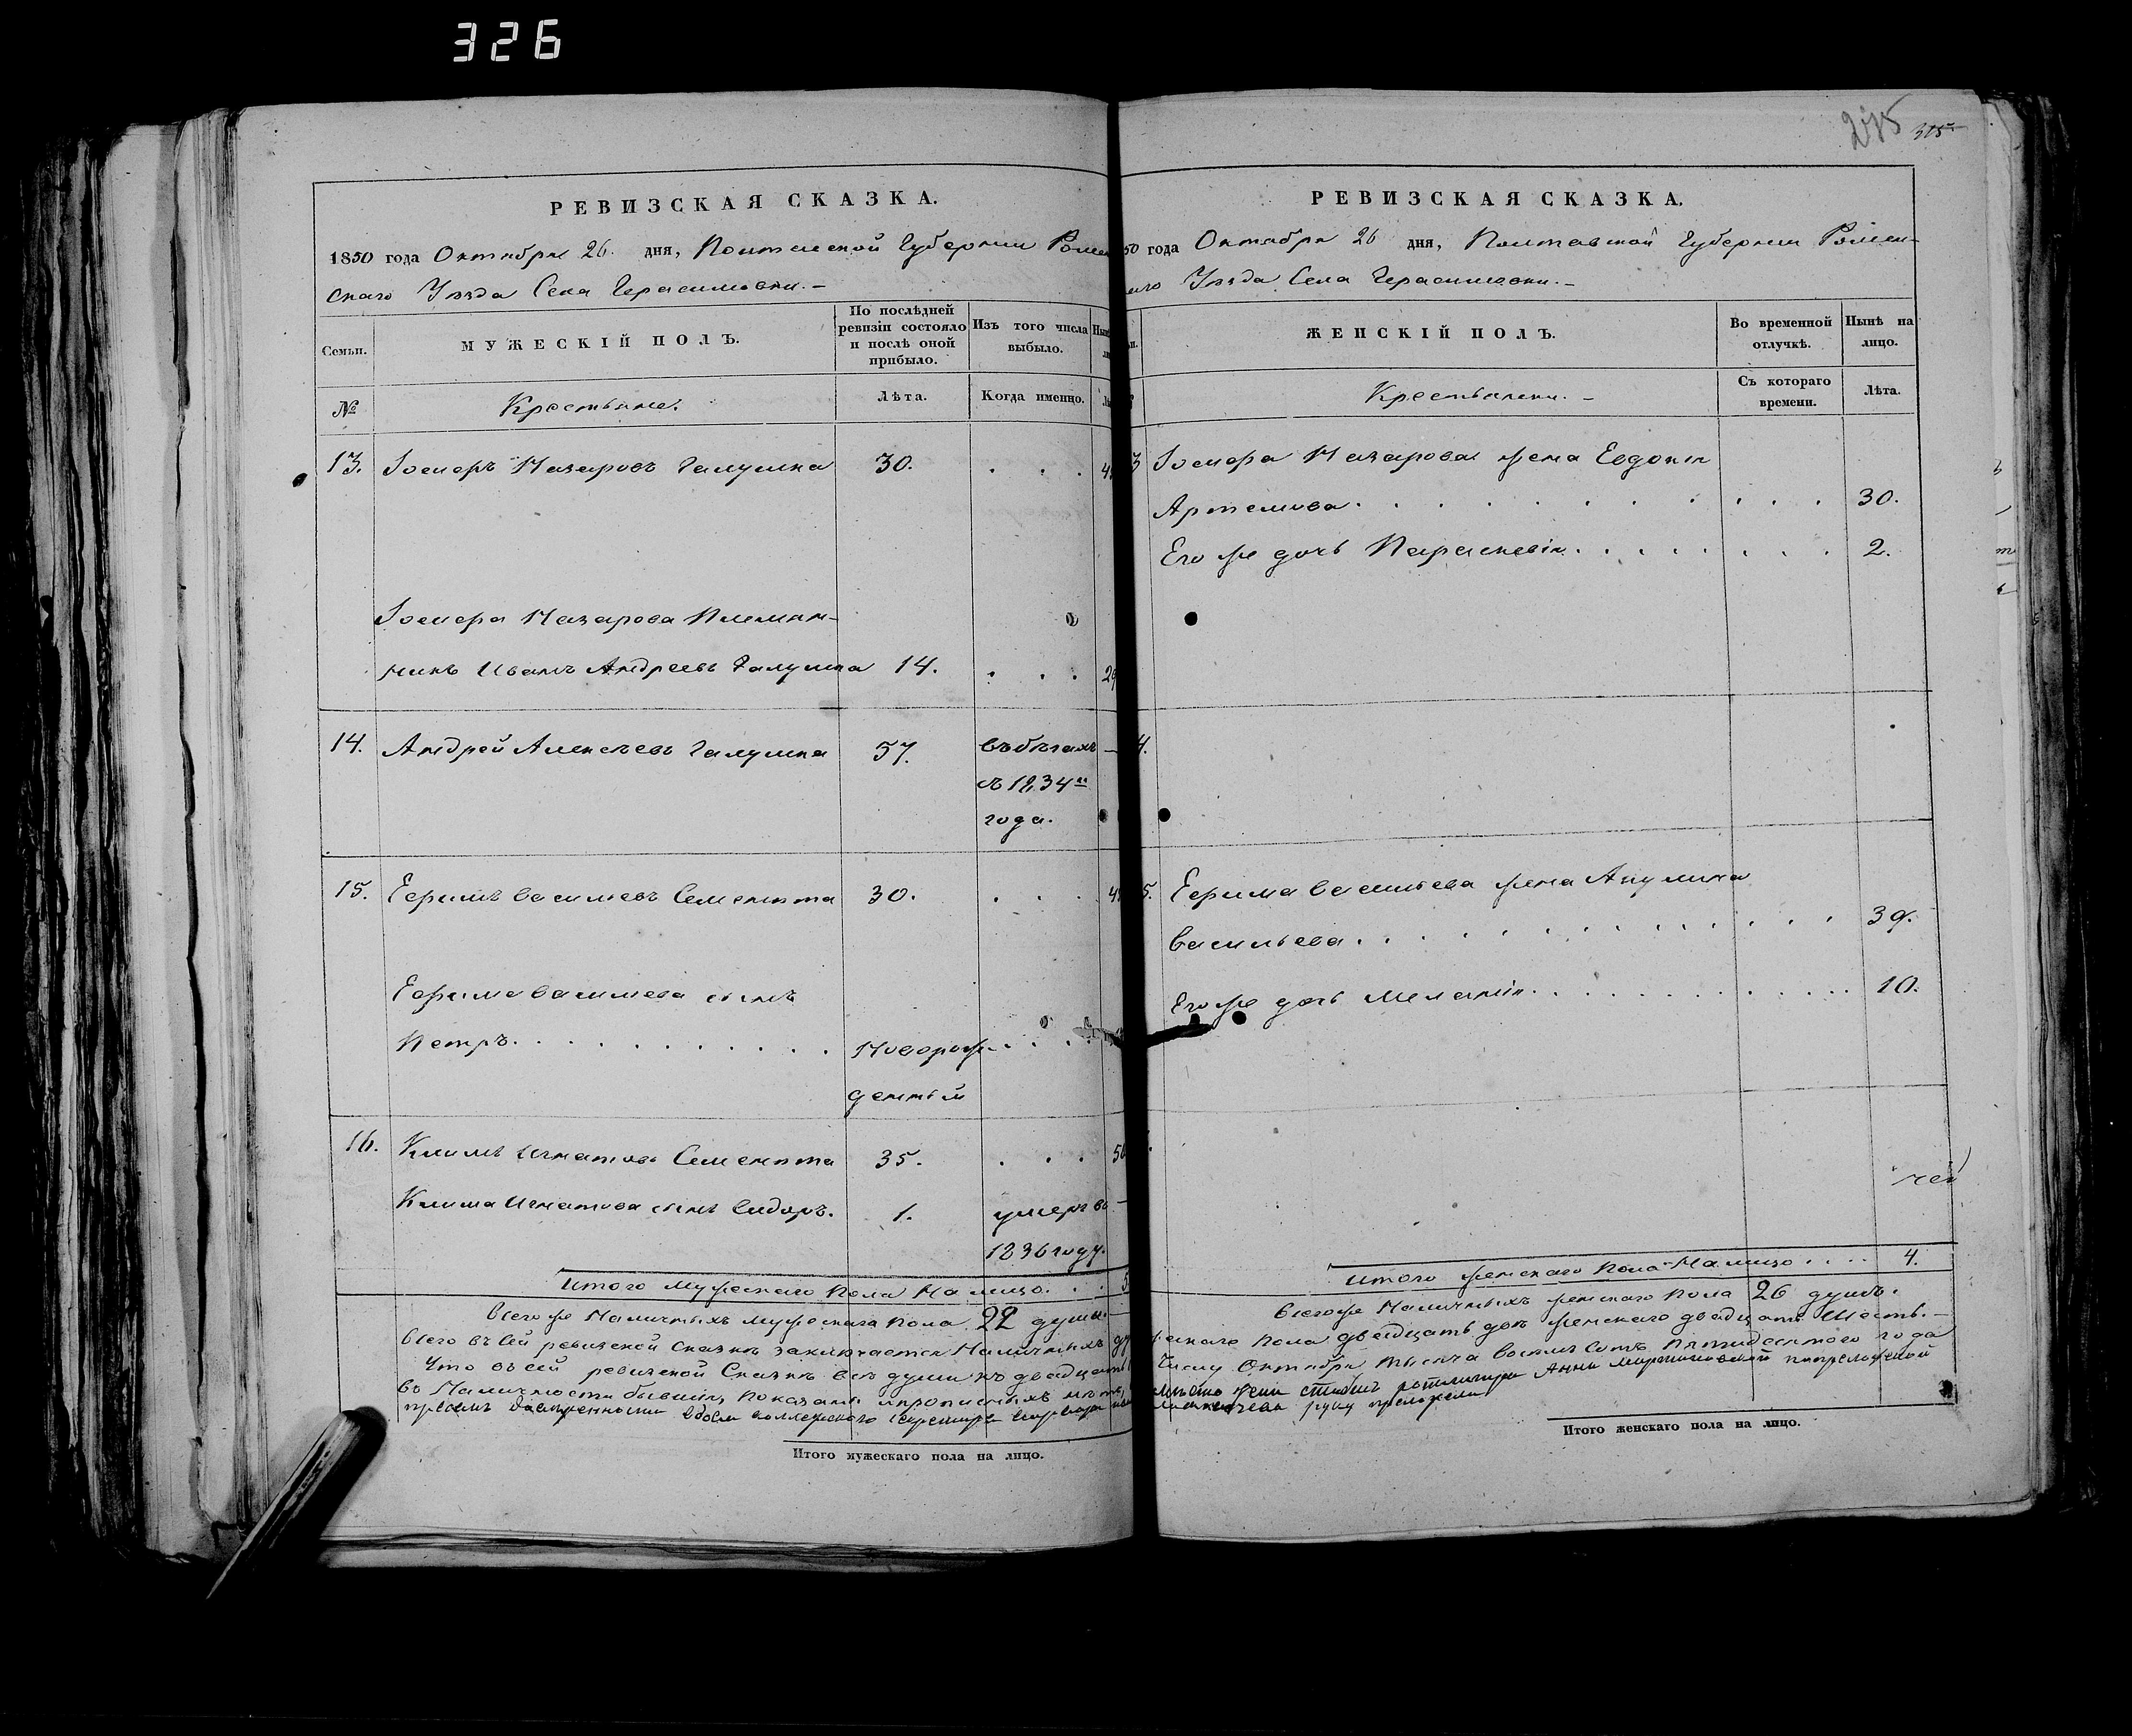 326
РЕВИЗСКАЯ СКАЗКА.
1850 года Октября 26. дня, Полтавской Губернии Ромен
скаго Уѣзда Села Герасимовки. –
Семьи.
МУЖЕСКІЙ ПОЛЪ.
По послѣдней ревизіи состояло и послѣ оной прибыло.
Изъ того числа выбыло.
№
Крестьяне.
Лѣта.
Когда именно.
13. Іосифъ Назаровъ Галушка 30. . . .
Іосифа Назарова Племян-
никъ Иванъ Андреевъ Галушка 14. . . . 29
14. Андрей Алексѣевъ Галушка 57. въ бѣгахъ –
съ 1834го
года.
15. Ефимъ Васильевъ Сементта 30. . . .
Ефима Васильева сынъ
Петръ. . . . . . . . . . Новорож- . . .
денный
16. Климъ Игнатовъ Сементта 35. . . . 50
Клима Игнатова сынъ Сидоръ. 1. умеръ въ –
1836 году.
Итого мужескаго пола На лицо. . . 5
Всего же Наличныхъ мужескаго пола 22 души.
Всего въ сей ревизской сказкѣ заключается Наличныхъ
Что въ сей ревизской Сказкѣ всѣ души по двадцать
въ Наличности бывшіе, показаны и прописныхъ нѣтъ,
Итого мужескаго пола на лицо.
275 315
РЕВИЗСКАЯ СКАЗКА.
50 года Октября 26 дня, Полтавской Губернии Ромен-
Уѣзда Села Герасимовки. –
ЖЕНСКІЙ ПОЛЪ.
Во временной отлучкѣ.
Нынѣ на лицо.
Крестьянки. –
Съ котораго времени.
Лѣта.
3 Іосифа Назарова жена Евдокія
Артемова. . . . . . . . . . . 30.
Его же дочь Параскевія. . . . . . . . . 2.
4.
5. Ефима Васильева жена Акулина
Васильева. . . . . . . . . . . . . 39.
Его же дочь Меланія. . . . . . . . . . . . 10.
Итого женскаго пола На лицо . . . . 4.
Всего же Наличныхъ женскаго пола 26 душъ.
пола двадцать двѣ женскаго двадцать Шесть. –
Числу Октября тысяча восемь сотъ пятидесятого года
руку приложила
Итого женскаго пола на лицо.